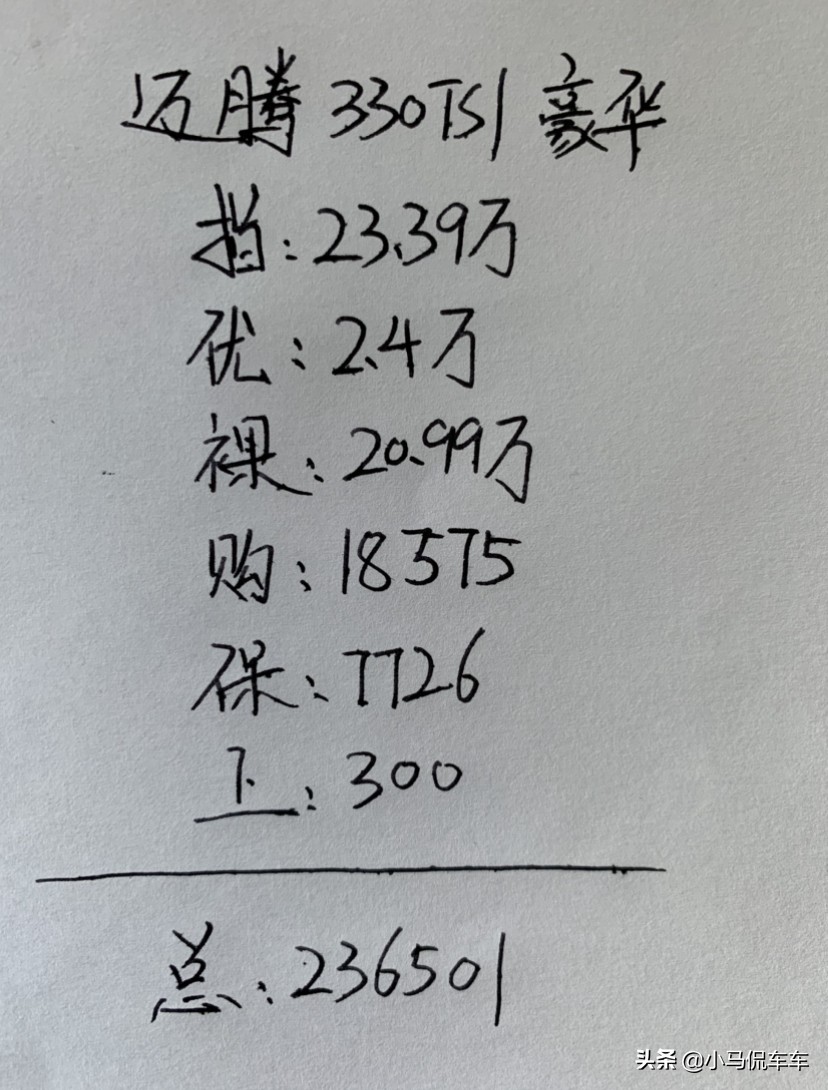 迈腾 330TSI 豪华
指:23.39万
优:2.4万
裸:20.99万
购:18575
保:7726
上:300
总:236501
头条 @小马侃车车